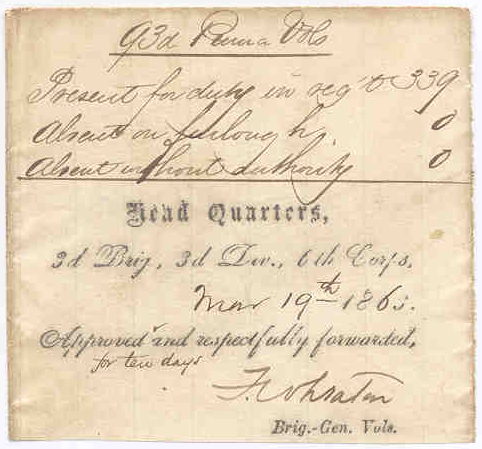 93d Penna Vols
Present for duty in reg't 339
Absent on furlough, 0
Absent without authority 0
Head Quarters,
3d Brig, 3d Div., 6th Corps,
Mar 19th 1863.
Approved and respectfully forwarded,
for ten days
Brig.-Gen. Vols.